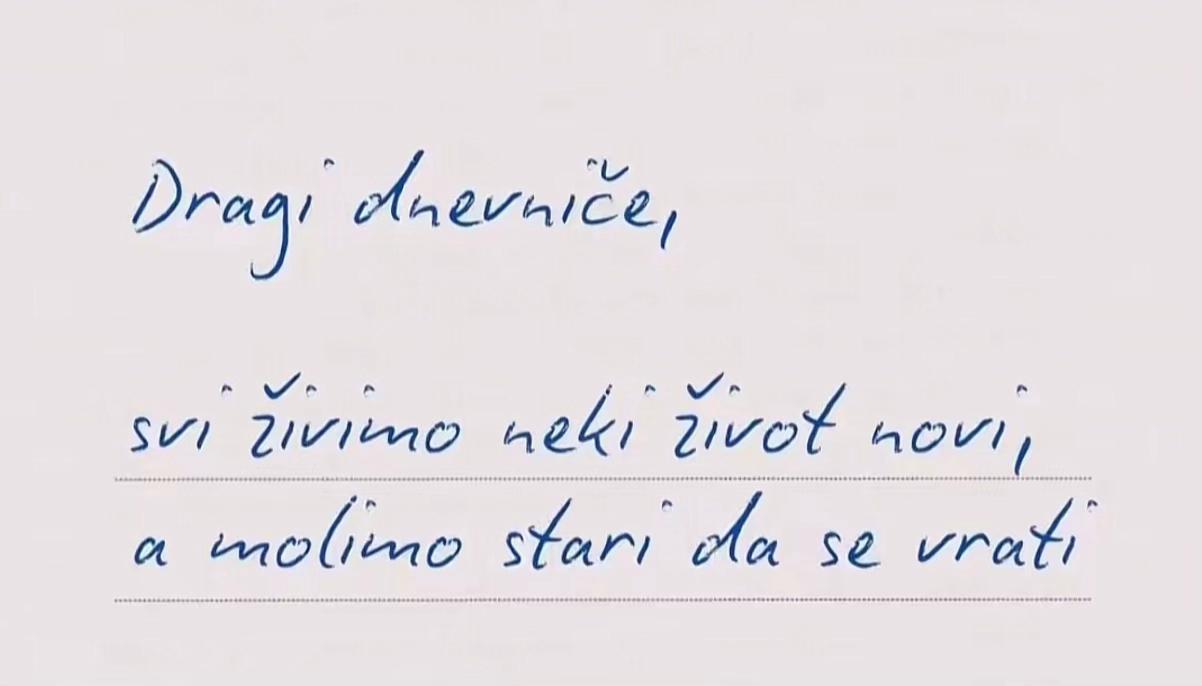 Dragi dnevniče,
svi živimo neki život novi,
a molimo stari da se vrati